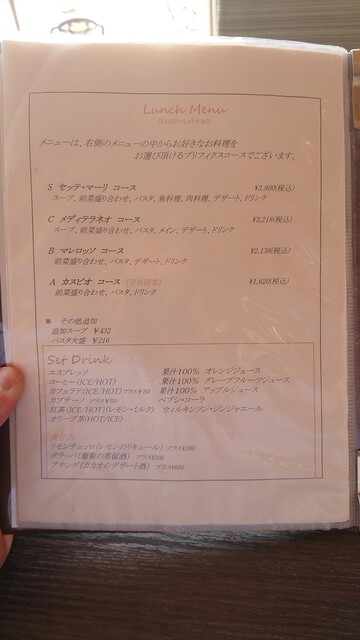 Lunch Menu
メニューは、右側のメニューの中からお好きなお料理を
お選び頂けるプリフィクスコースでございます。
S セッテ・マーリ コース ¥3,800(税込)
スープ、前菜盛り合わせ、パスタ、魚料理、肉料理、デザート、ドリンク
C メディテラネオ コース ¥3,218(税込)
スープ、前菜盛り合わせ、パスタ、メイン、デザート、ドリンク
B マレロッソ コース ¥2,138(税込)
前菜盛り合わせ、パスタ、デザート、ドリンク
A カスピオ コース (平日限定) ¥1,620(税込)
前菜盛り合わせ、パスタ、ドリンク
■ その他追加
追加スープ ¥432
パスタ大盛 ¥216
Set Drink
エスプレッソ 果汁100% オレンジジュース
コーヒー(ICE/HOT) 果汁100% グレープフルーツジュース
カフェラテ(ICE/HOT)プラス¥50 果汁100% アップルジュース
カプチーノ プラス¥50 ペプシ・コーラ
紅茶(ICE/HOT)(レモン・ミルク) ウィルキンソン・ジンジャエール
オリーブ茶(ICE/HOT)
リモンチェッロ(レモンのリキュール) プラス¥200
グラッパ(葡萄の蒸留酒) プラス¥200
アナンダ(カカオのデザート酒) プラス¥600